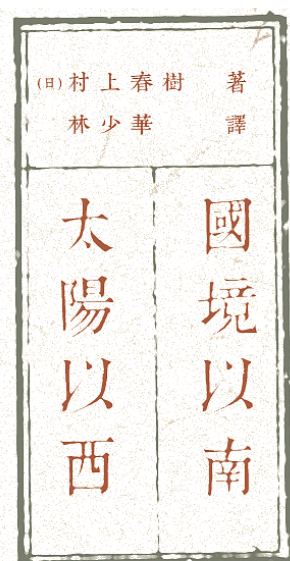 (日)村上春樹 著
林少華 譯
國境以南
太陽以西